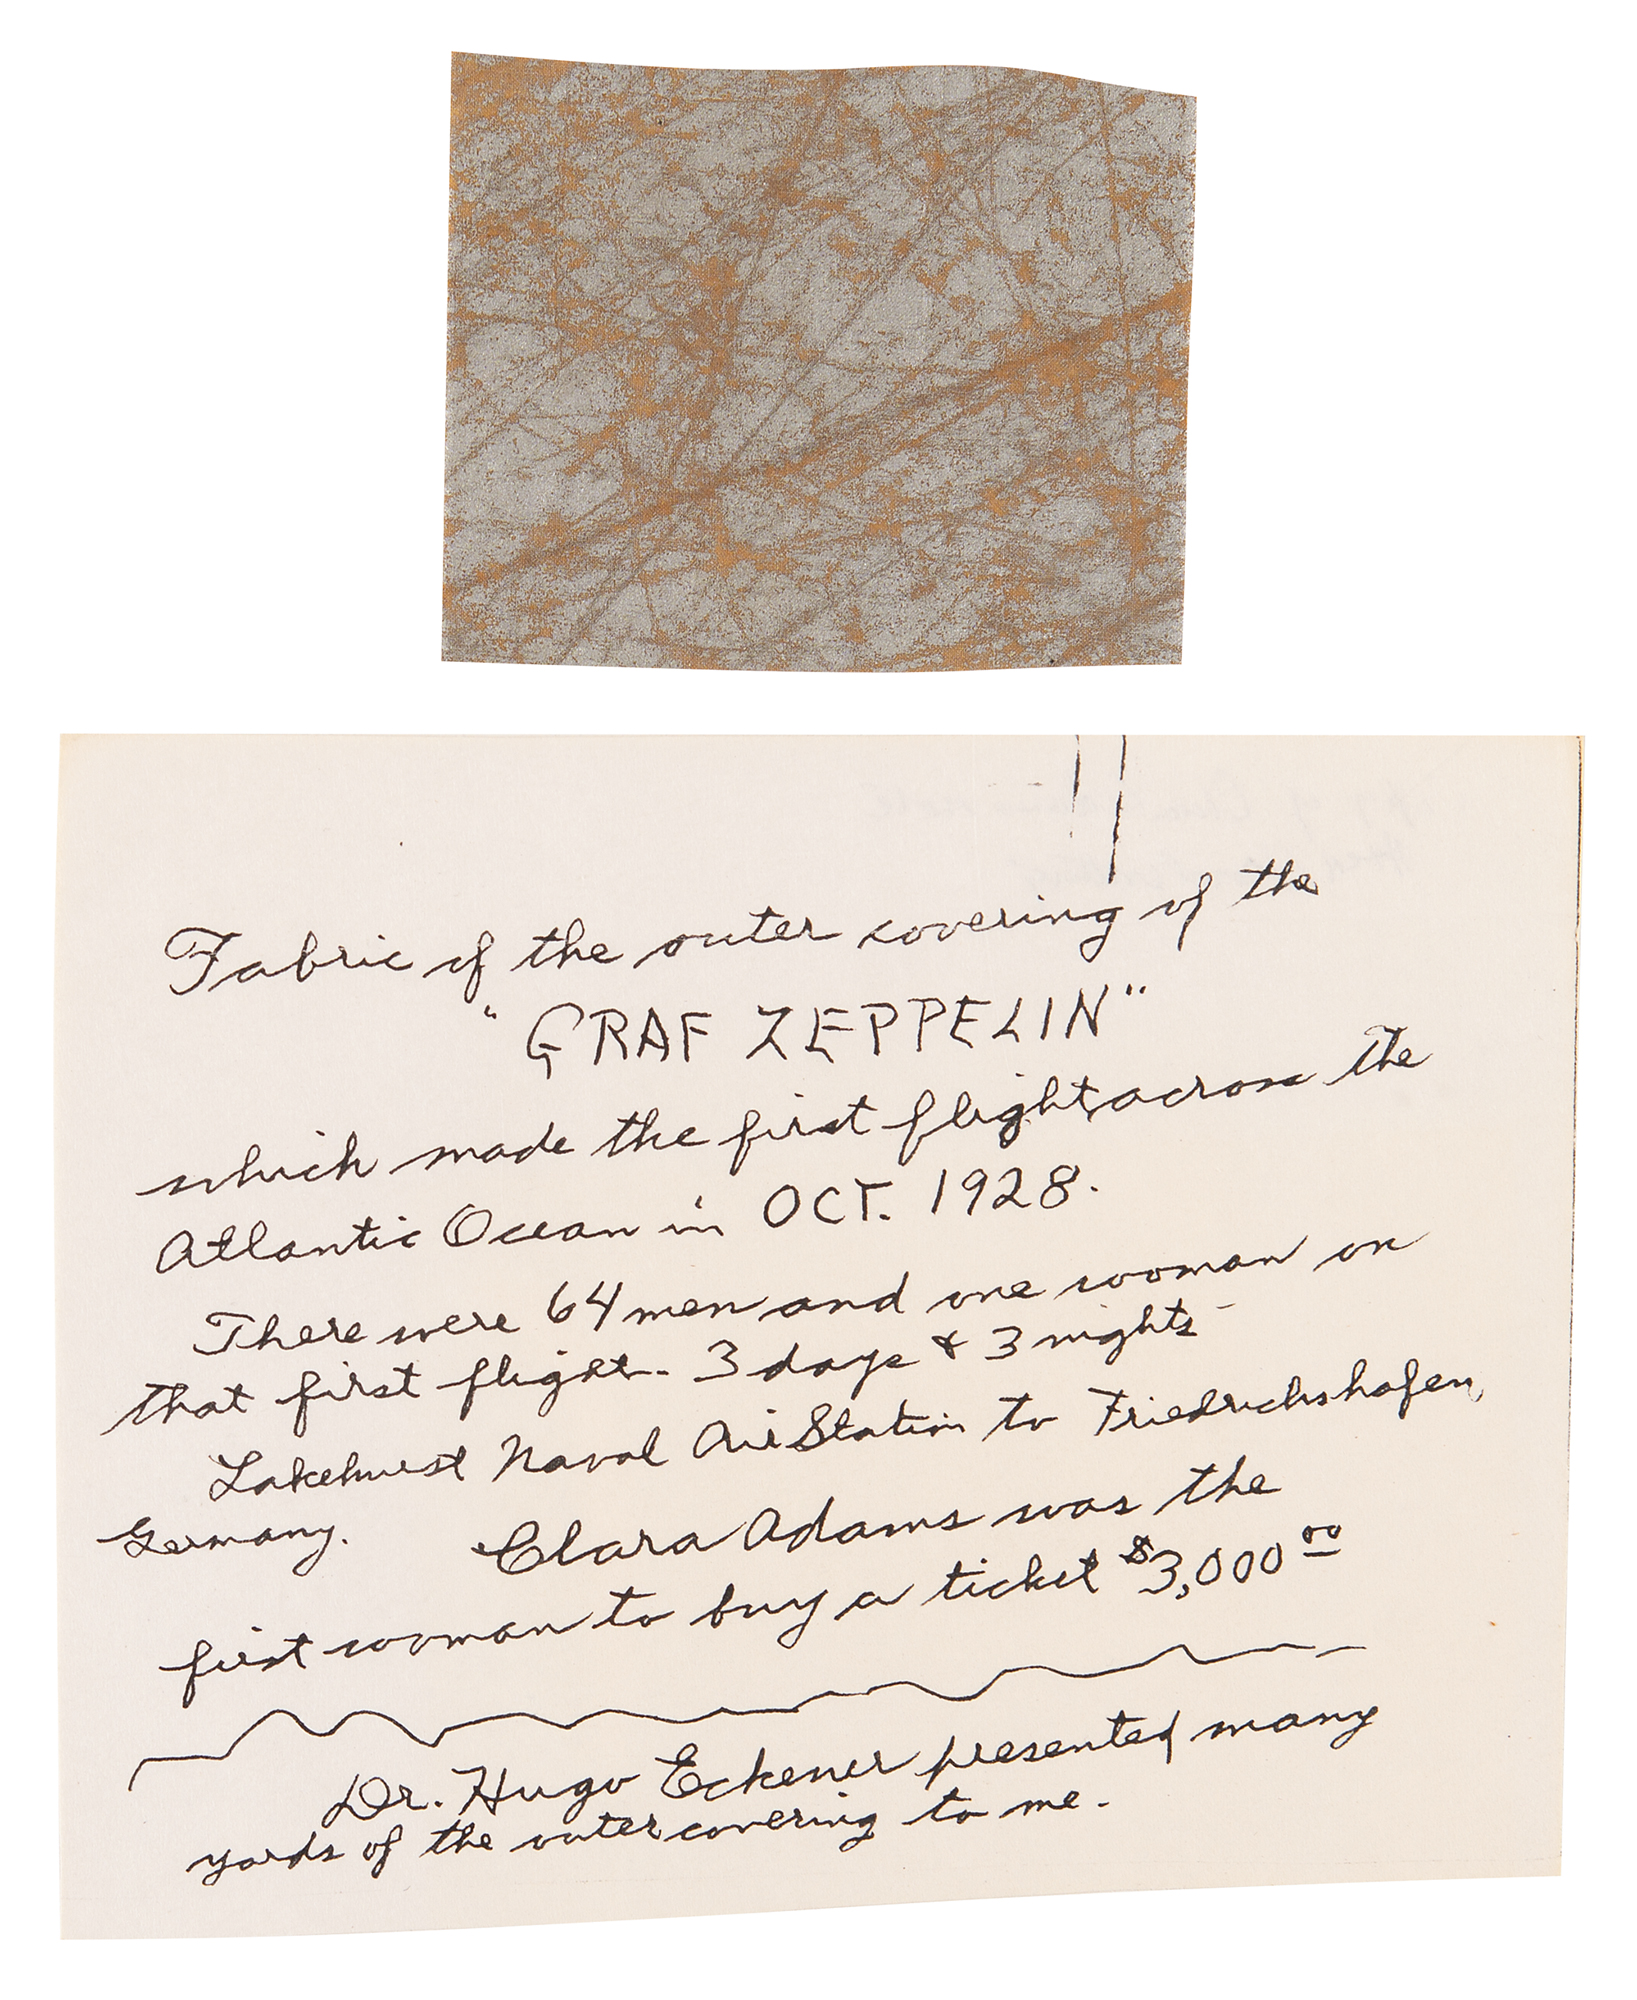 Fabric of the outer covering of the
"GRAF ZEPPELIN"
which made the first flight across the
Atlantic Ocean in OCT. 1928.
There were 64 men and one woman on
that first flight. 3 days & 3 nights -
Lakehurst Naval Air Station to Friedrichshafen,
Germany. Clara Adams was the
first woman to buy a ticket $3,000 00
Dr. Hugo Eckener presented many
yards of the outer covering to me.